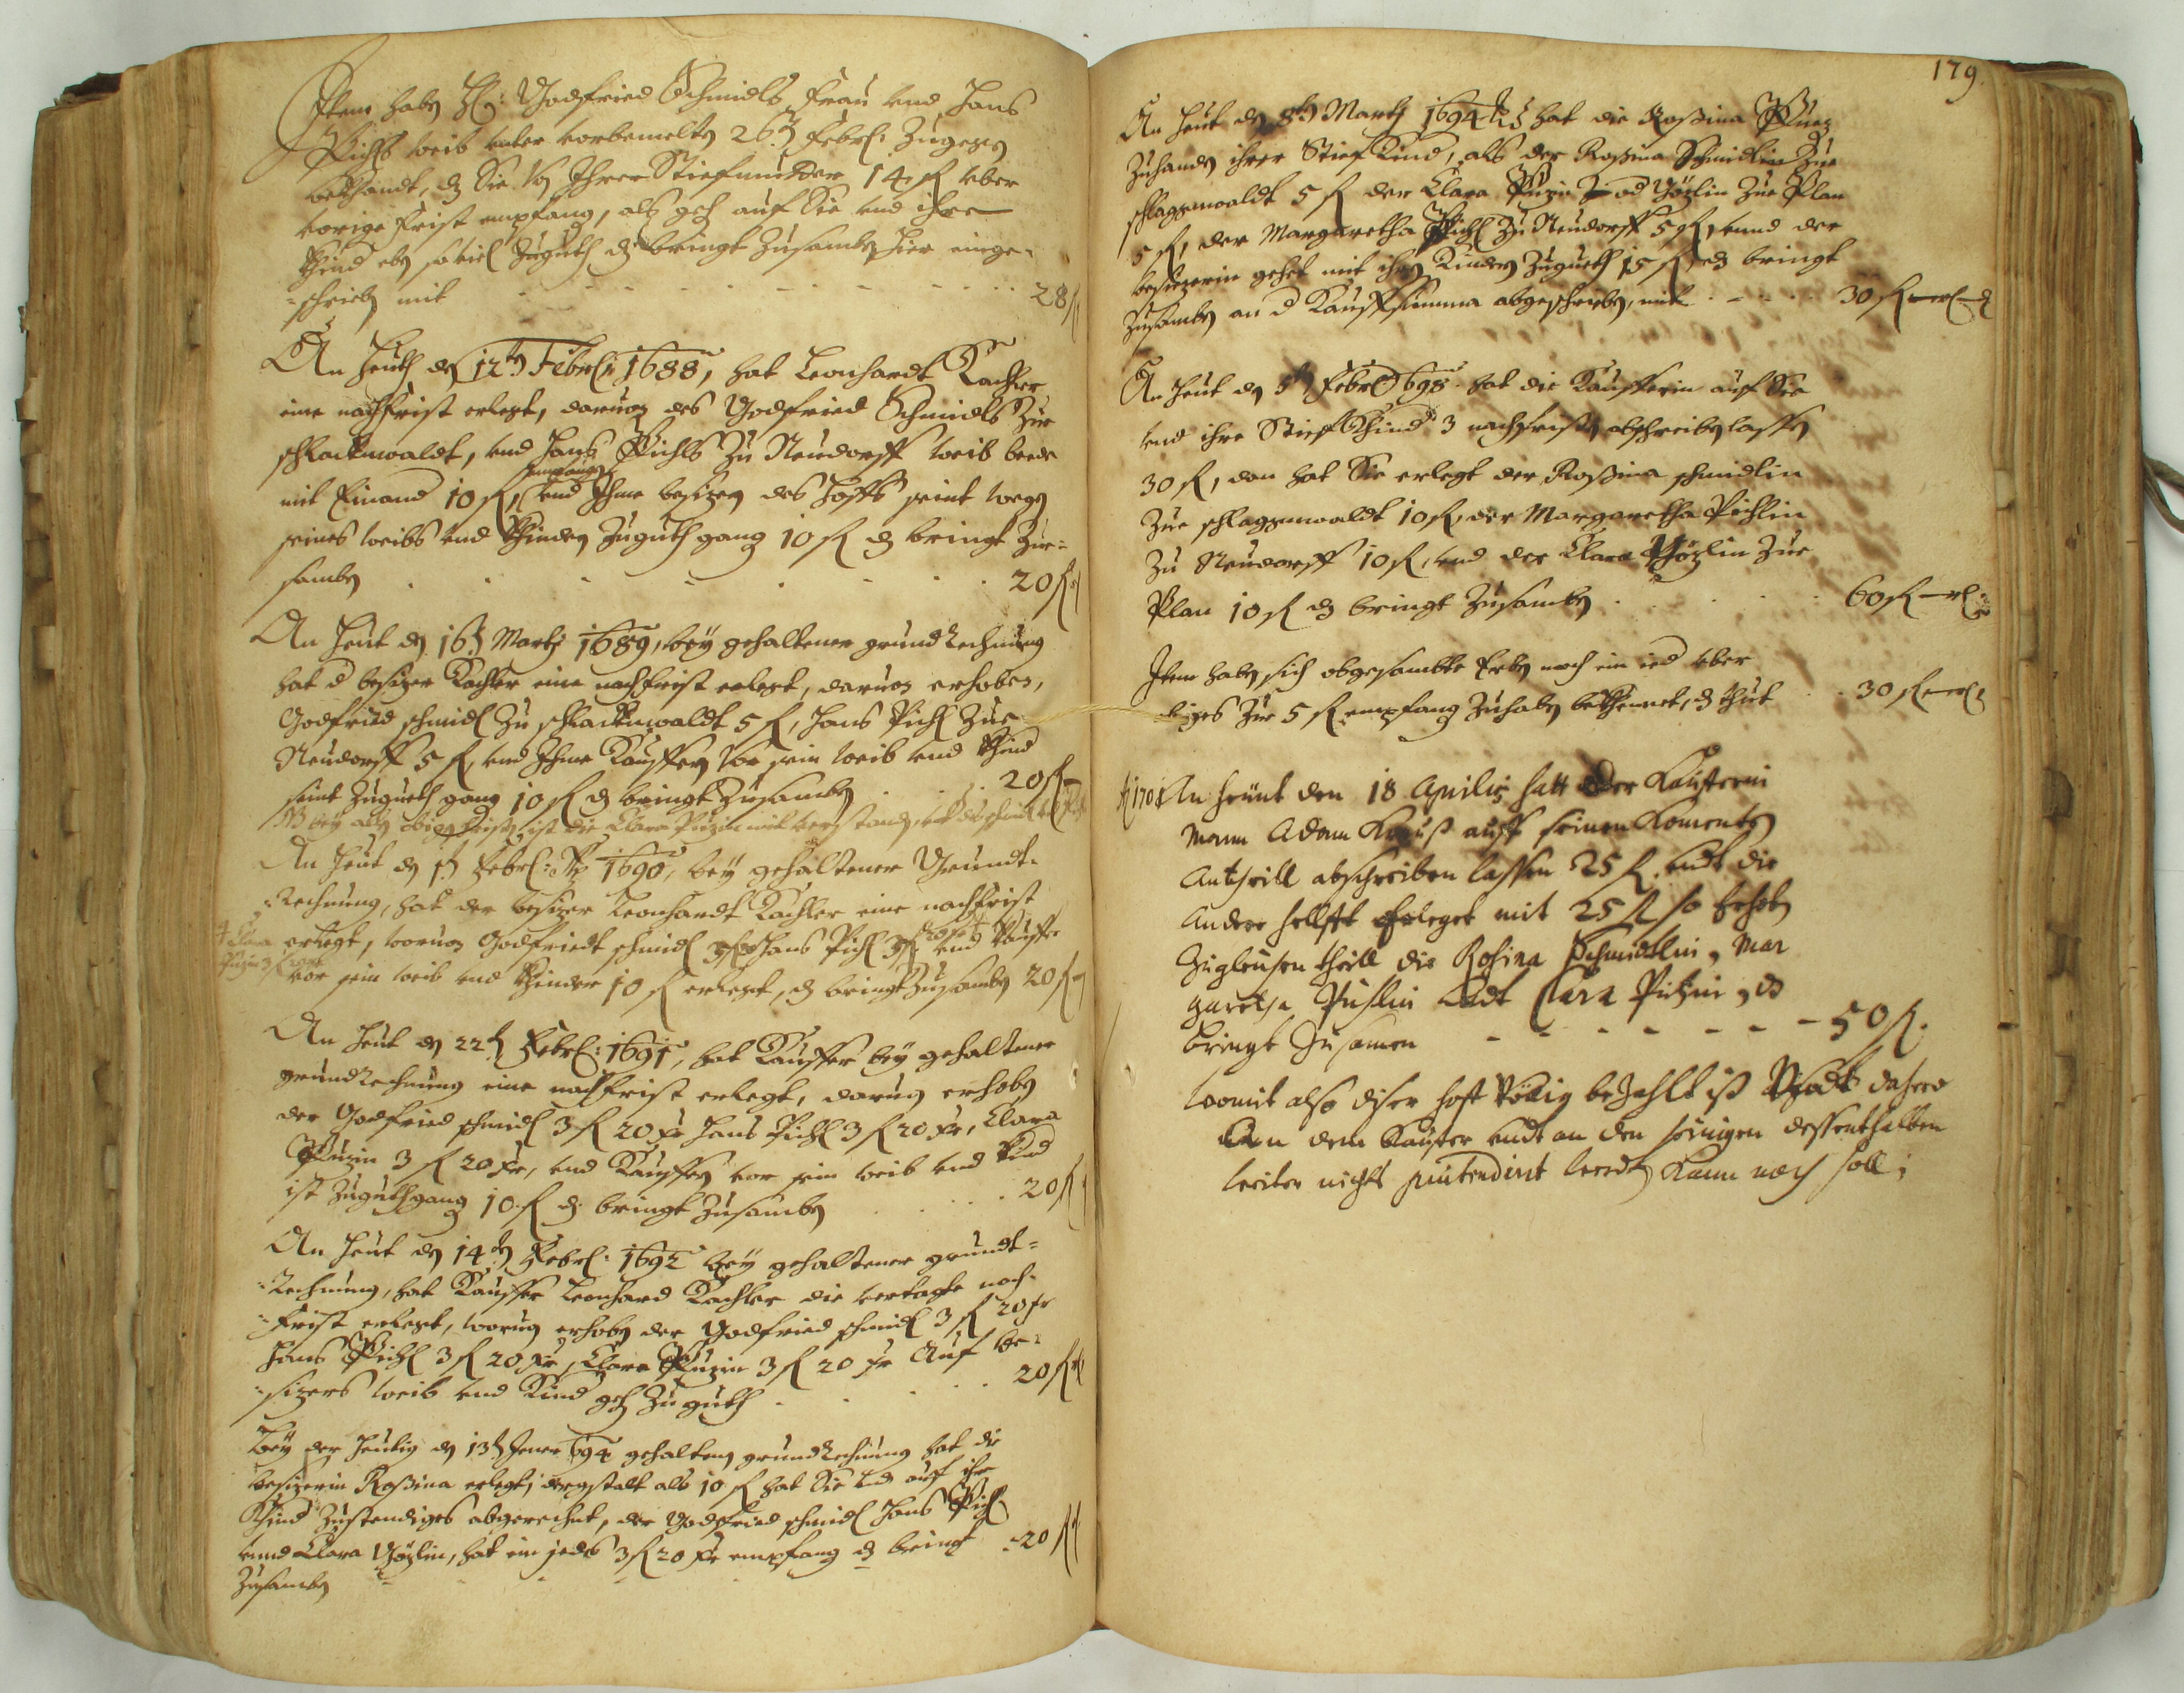 Item haben H: Godfried Schmidls Frau und Hans
Pichls weib unter vorbemelten 26ten Febr: zugegen
bekhandt, dz Sie von Ihrer Stiefmutter 14 fl uber
vorige Frist empfangen, als geh auf Sie und ihre
Khind eben soviel Zuguth dz bringt Zusamben hier einge-
-schrieben mit - - - 28 fl
An heuth den 12ten Febr: 1688, hat Leonhardt Kachler
eine nachfrist erlegt, daruon des Godfried Schmidls Zue
schlackenwaldt, und Hans Pichls Zu Neudorff weib beede
mit Einand 10 fl, empfangen und Ihme besizern des Hoffs seint wegen
seines weibs und Khinder Zuguth gangen 10 fl dz bringt Zue-
samben . . . 20 fl
An heut den 16ten Martj 1689, bey gehaltener grundRechnung
hat d besizer Kachler eine nachfrist erlegt, daruon erhoben,
Godfried schmidl Zu schlackenwaldt 5 fl, Hans Pichl Zue
Neudorff 5 fl, und Ihme Kauffern vor sein weib und Khind
seint Zugueth gangen 10 fl dz bringt Zusamben . . 20 fl
NB bey allen obigen fristen ist die Clara Puzin mit verstanden
An heut den 1ten Febr: Ao 1690, bey gehaltener Grundt-
-Rechnung, hat der besizer Leonhardt Kachler eine nachfrist
erlegt, woruon Godfriedt schmidl 3 fl Hans Pichl 3 fl und Kauffer
Clara Puzin 3 fl
vor sein weib und Khinder 10 fl erlegt, dz bringt Zusamben 20 fl
An heut den 22ten Febr: 1691, hat Kauffer bey gehaltener
grundRechnung eine nachfrist erlegt, daruon erhoben
der Godfried schmidl 3 fl 20 xr Hans Pichl 3 fl 20 xr, Clara
Puzin 3 fl 20 xr, und Kauffern vor sein weib und Kind
ist Zuguthgangen 10 fl dz bringt Zusamben . . . 20 fl
An heut den 14ten Febr: 1692 bey gehaltener grundt-
-Rechnung, hat Kauffer Leonhard Kachler die vertagte nach-
-frist erlegt, woruon erhoben der Godfried schmidl 3 fl 20 xr
Hans Pichl 3 fl 20 xr, Clara Puzin 3 fl 20 xr Auf be-
-sizers weib und Kind geh Zu guth . . . 20 fl
Bey der heutig den 13ten Jener 694 gehalten grundRechnung hat die
besizerin Rosina erlegt, dergstalt als 10 fl hat Sie und auf ihre
Khind Zustendiges abgerechnet, der Godfried schmidl Hans Pichl
unnd Clara Gözlin, hat ein jedes 3 fl 20 xr empfang dz bringt - 20 fl
Zusamben
179.
An heut den 8ten Martj 1694 hat die Rosina
Zuhanden ihrer Stief Kind, als der Rosina Schmidlin Zue
schlaggenwaldt 5 fl der Clara Puzin od Gözlin Zue Plan
5 fl, der Margaretha Pichl Zu Neudorff 5 fl, unnd der
besizerin gehet mit ihren Kindern Zugueth 15 fl, dz bringt
Zusamben an d Kauffsumma abgeschrieben, mit . - - . 30 fl
An heut den 5ten Febr 1698. hat die Kaufferin auf Sie
und ihre Stief Khind 3 nachfristen abschreiben lassen
30 fl, dan hat Sie erlegt der Rosina schmidlin
Zue schlaggenwaldt 10 fl, der Margaretha Pichlin
Zu Neudorff 10 fl, und der Clara Gözlin Zue
Plan 10 fl dz bringt Zusamben . . . 60 fl
Item haben sich obgesambte Erben noch ein ied uber
Zue 5 fl empfang Zuhaben bekhennet, dz thut . . 30 fl
An heunt den 18 Aprilis hatt der Kauferin
Mann Adam auff seinen
Antheill abschreiben lassen 25 fl. undt die
andere helffte Erleget mit 25 fl so hehoben
Zugleichen theill die Rosina Schmidtlin, Mar
garetha Puhlin undt Clara Putzin, dz
bringt Zusamen - - - - - - 50 fl.
Womit also diser hoff völlig bezahlt ist Undt dahero
An dem Kaufer undt an den seinigen dessenthalben
weiter nichts praetendirt werden kann noch soll;